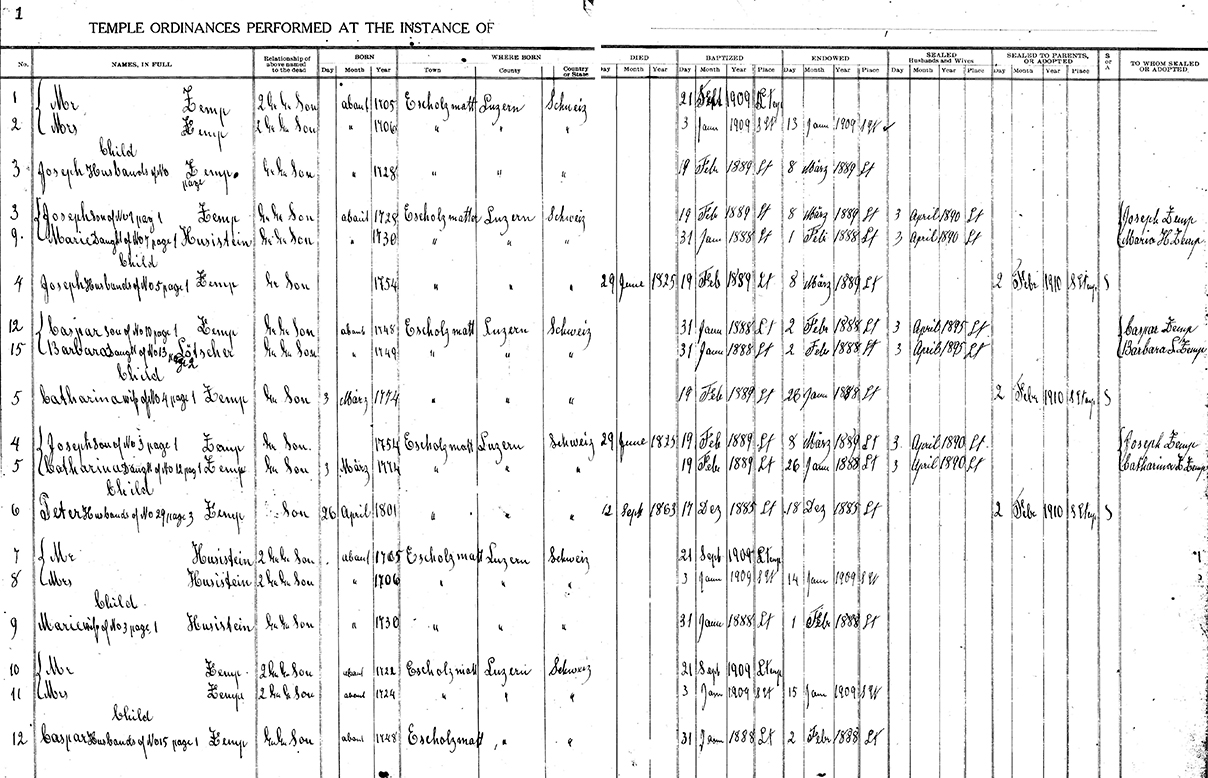 1
TEMPLE ORDINANCES PERFORMED AT THE INSTANCE OF
No. NAMES, IN FULL Relationship of above named to the dead BORN Day Month Year WHERE BORN Town County Country or State DIED Day Month Year BAPTIZED Day Month Year Place ENDOWED Day Month Year Place SEALED Husbands and Wives Day Month Year Place SEALED TO PARENTS, OR ADOPTED Day Month Year Place S or A TO WHOM SEALED OR ADOPTED
1 Mr Zemp 2 Gr Gr Son about 1705 Escholzmatt Luzern Schweiz 21 Sept 1909 L Temp
2 Mrs Zemp 2 Gr Gr Son " 1706 " " " 3 Jann 1909 S W 13 Jann 1909 S W ✓
Child
3 Joseph Husbands of No Zemp Gr Gr Son " 1728 " " " 19 Febr 1889 Lt 8 März 1889 Lt
page
3 Joseph son of No 1 pag 1 Zemp Gr Gr Son about 1728 Escholzmatt Luzern Schweiz 19 Feb 1889 Lt 8 März 1889 Lt 3 April 1890 Lt Joseph Zemp
9. Marie Daught of No 7 page 1 Husistein Gr Gr Son " 1730 " " " 31 Jann 1888 Lt 1 Feb 1888 Lt 3 April 1890 Lt Maria H. Zemp
Child
4 Joseph Husbands of No 5 page 1 Zemp Gr Son 1754 " " " 29 June 1825 19 Feb 1889 Lt 8 März 1889 Lt 2 Febr 1910 S L Temp S
12 Caspar son of No 10 page 1 Zemp Gr Gr Son about 1748 Escholzmatt Luzern Schweiz 31 Jann 1888 Lt 2 Febr 1888 Lt 3 April 1895 Lt Caspar Zemp
15 Barbara Daught of No 13 page 2 Lötscher Gr Gr Son " 1749 " " " 31 Jann 1888 Lt 2 Febr 1888 Lt 3 April 1895 Lt Barbara L. Zemp
Child
5 Catharina wife of No 4 page 1 Zemp Gr Son 3 März 1774 " " " 19 Feb 1889 Lt 26 Jann 1888 Lt 2 Febr 1910 S L Temp S
4 Joseph son of No 3 page 1 Zemp Gr Son. 1754 Escholzmatt Luzern Schweiz 29 June 1825 19 Feb 1889 Lt 8 März 1889 Lt 3 April 1890 Lt Joseph Zemp
5 Catharina Daught of No 12 pag 1 Zemp Gr Son 3 März 1774 " " " 19 Febr 1889 Lt 26 Jann 1888 Lt 3 April 1890 Lt Catharina Z. Zemp
Child
6 Peter Husbands of No 29 page 3 Zemp Son 26 April 1801 " " " 12 Sept 1863 17 Dez 1885 Lt 18 Dez 1885 Lt 2 Febr 1910 S L Temp S
7 Mr Husistein 2 Gr Gr Son about 1705 Escholzmatt Luzern Schweiz 21 Sept 1909 L Temp
8 Mrs Husistein 2 Gr Gr Son " 1706 " " " 3 Jann 1909 S W 14 Jann 1909 S W
Child
9 Marie wife of No 3 page 1 Husistein Gr Gr Son " 1730 " " " 31 Jann 1888 Lt 1 Febr 1888 Lt
10 Mr Zemp 2 Gr Gr Son about 1722 Escholzmatt Luzern Schweiz 21 Sept 1909 L Temp
11 Mrs Zemp 2 Gr Gr Son about 1724 " " " 3 Jann 1909 S W 15 Jann 1909 S W
Child
12 Caspar Husbands of No 15 page 1 Zemp Gr Gr Son about 1748 Escholzmatt " " 31 Jann 1888 Lt 2 Febr 1888 Lt